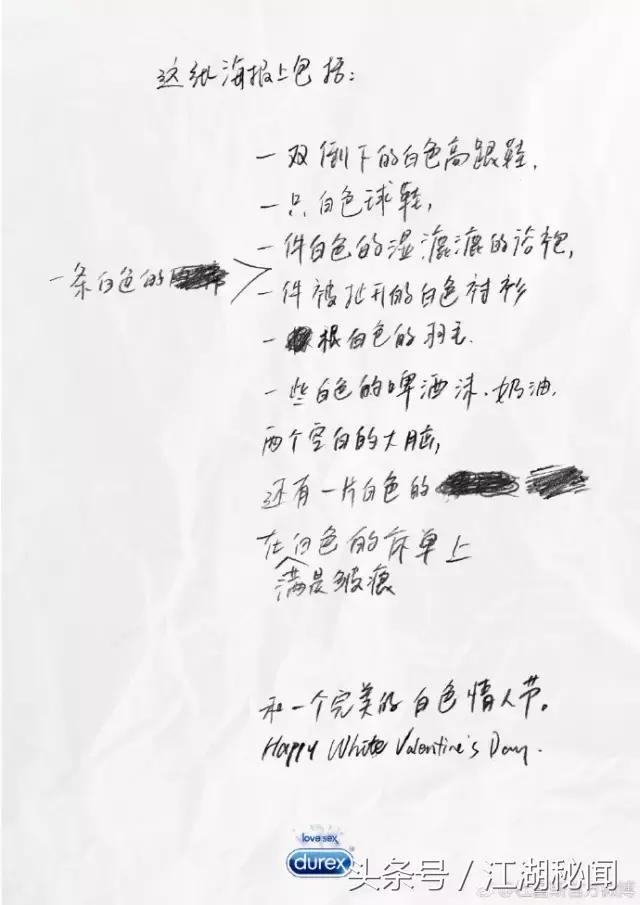 这纸海报上包括：
一双倒下的白色高跟鞋，
一只白色球鞋，
一件白色的湿漉漉的浴袍，
一条白色的
一件被扯开的白色衬衫
一根白色的羽毛.
一些白色的啤酒沫、奶油.
两个空白的大脑，
还有一片白色的
在白色的床单上
满是皱痕
和一个完美的白色情人节。
Happy White Valentine's Day.
love sex
durex
头条号 / 江湖秘闻